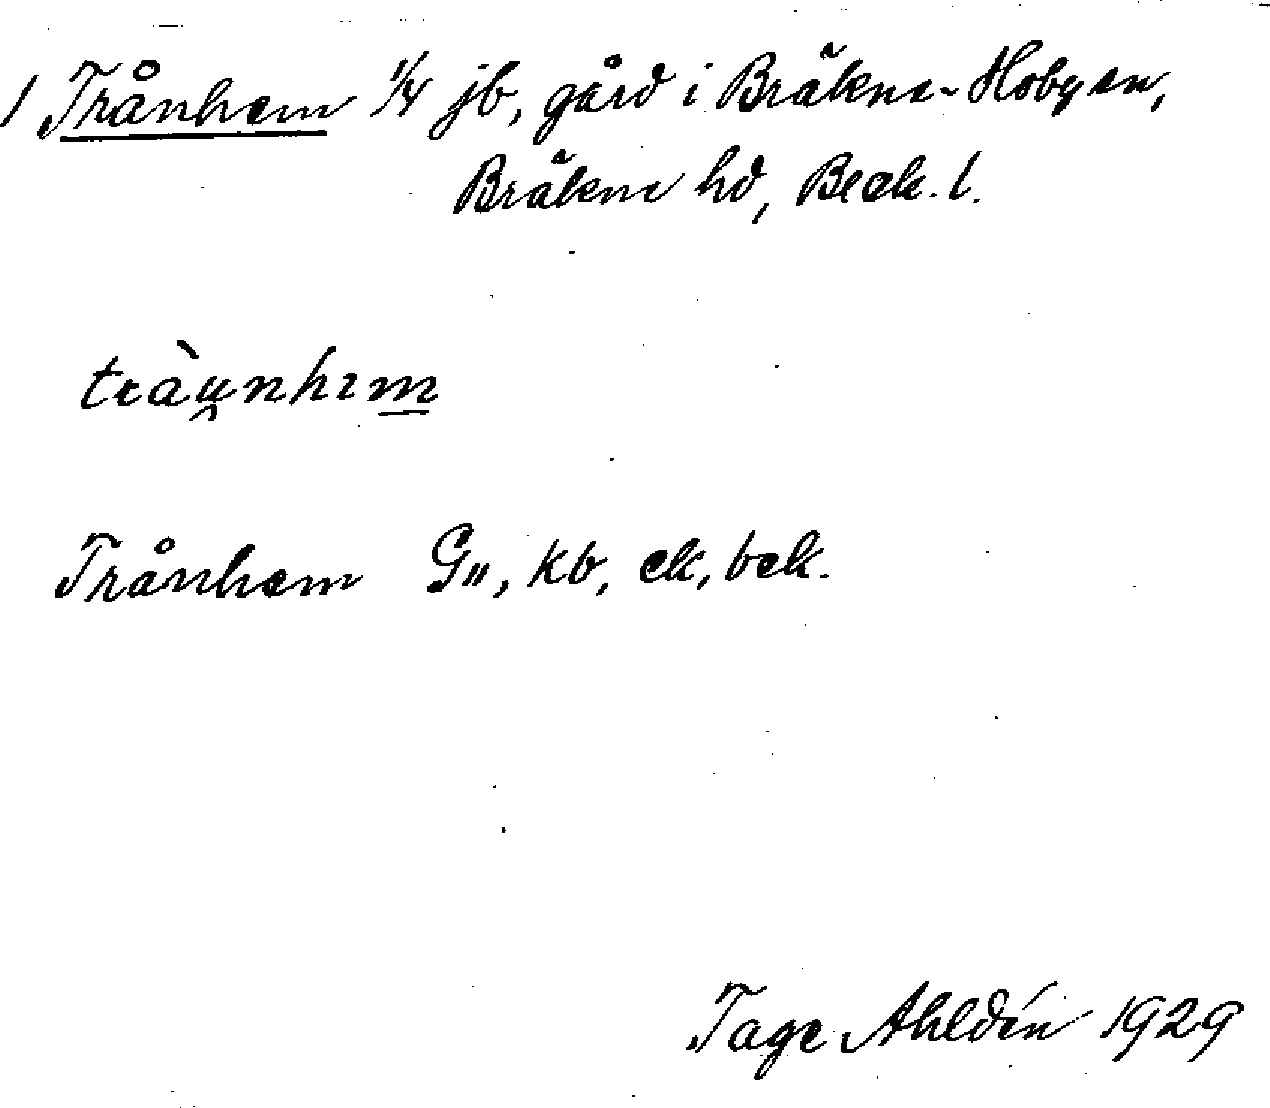 1 Trånhem 1/4 jb, gård i Bräkne-Hoby sn,
Bräkne hd, Blek. l.
tràu̯nhɪm̲
Trånhem G", kb, ek, bek.
Tage Ahldén 1929